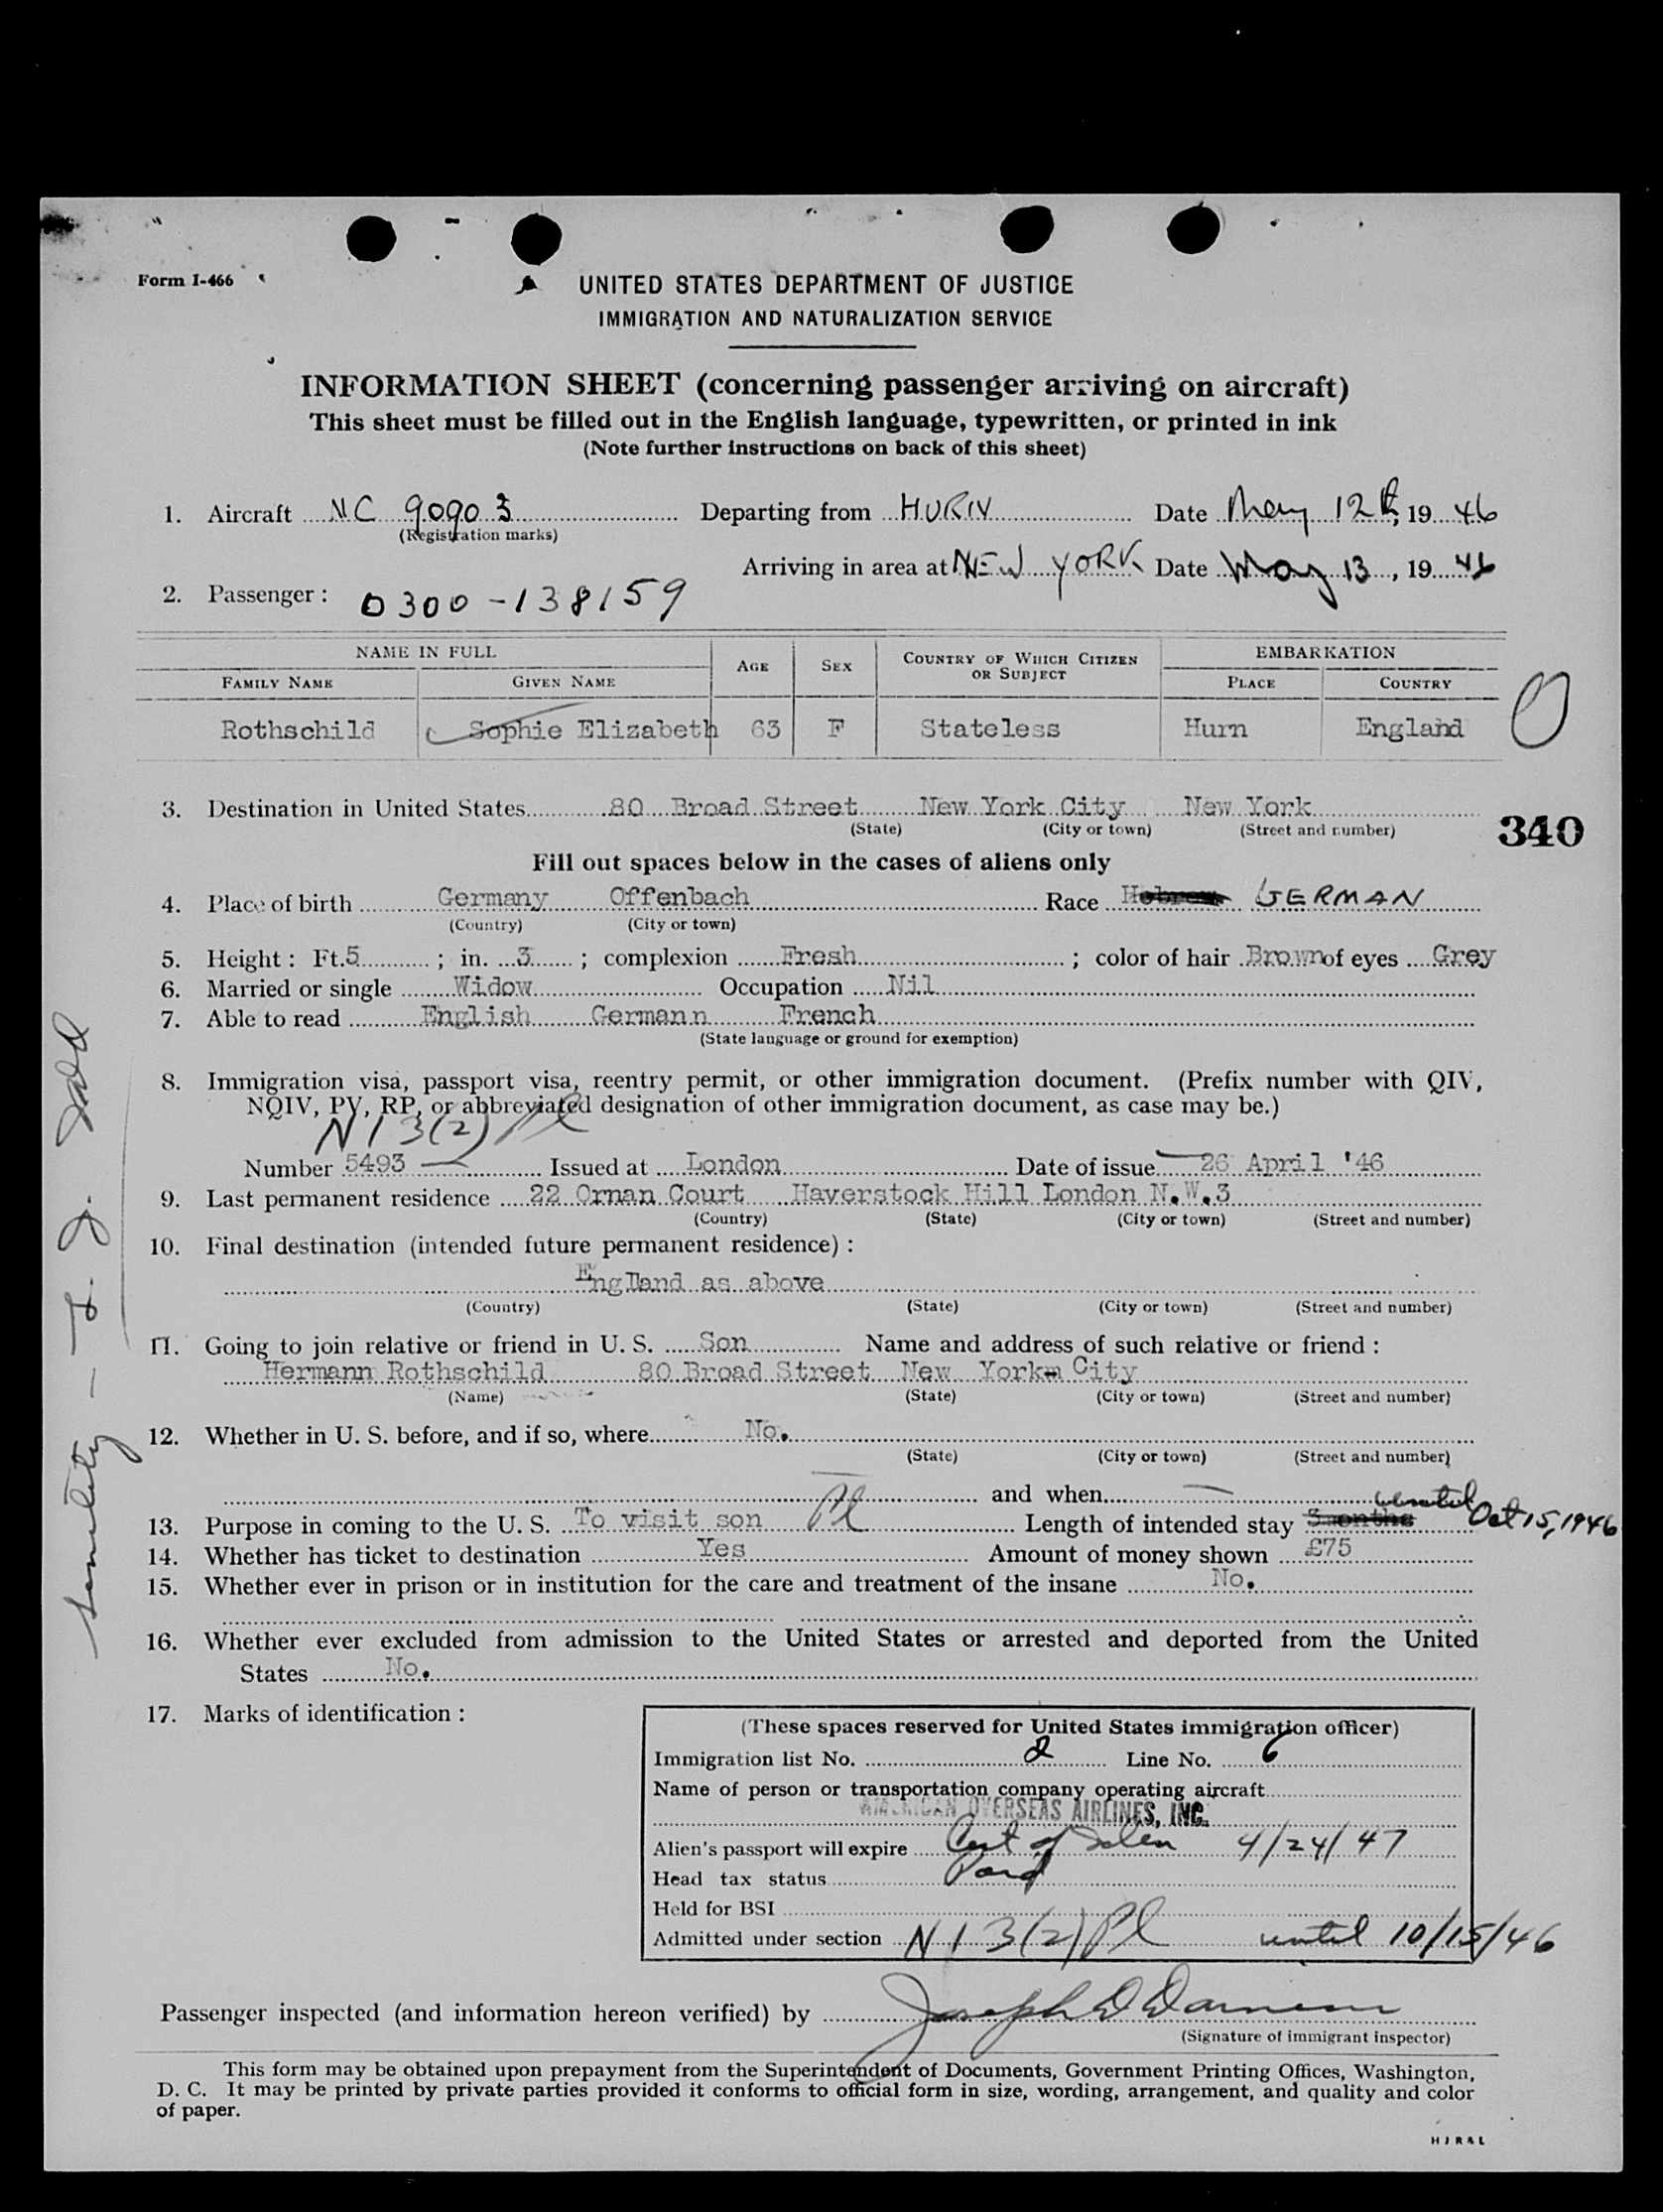 Form I-466
UNITED STATES DEPARTMENT OF JUSTICE
IMMIGRATION AND NATURALIZATION SERVICE
INFORMATION SHEET (concerning passenger arriving on aircraft)
This sheet must be filled out in the English language, typewritten, or printed in ink
(Note further instructions on back of this sheet)
1. Aircraft NC 90903 Departing from HURN Date May 12th, 1946
(Registration marks)
Arriving in area at NEW YORK Date May 13, 1946
2. Passenger: 0300-138159
NAME IN FULL AGE SEX COUNTRY OF WHICH CITIZEN OR SUBJECT EMBARKATION
FAMILY NAME GIVEN NAME PLACE COUNTRY
Rothschild Sophie Elizabeth 63 F Stateless Hurn England
3. Destination in United States 80 Broad Street New York City New York
(State) (City or town) (Street and number)
340
Fill out spaces below in the cases of aliens only
4. Place of birth Germany Offenbach Race Hebrew GERMAN
(Country) (City or town)
5. Height: Ft. 5; in. 3; complexion Fresh; color of hair Brown of eyes Grey
6. Married or single Widow Occupation Nil
7. Able to read English Germann French
(State language or ground for exemption)
8. Immigration visa, passport visa, reentry permit, or other immigration document. (Prefix number with QIV,
NQIV, PV, RP, or abbreviated designation of other immigration document, as case may be.)
N I 3(2) Pl
Number 5493 Issued at London Date of issue 26 April '46
9. Last permanent residence 22 Ornan Court Haverstock Hill London N.W.3
(Country) (State) (City or town) (Street and number)
10. Final destination (intended future permanent residence):
England as above
(Country) (State) (City or town) (Street and number)
11. Going to join relative or friend in U. S. Son Name and address of such relative or friend:
Hermann Rothschild 80 Broad Street New York City
(Name) (State) (City or town) (Street and number)
12. Whether in U. S. before, and if so, where No.
(State) (City or town) (Street and number)
and when —
13. Purpose in coming to the U. S. To visit son Pl Length of intended stay 3 months until Oct 15, 1946
14. Whether has ticket to destination Yes Amount of money shown £75
15. Whether ever in prison or in institution for the care and treatment of the insane No.
16. Whether ever excluded from admission to the United States or arrested and deported from the United
States No.
17. Marks of identification:
(These spaces reserved for United States immigration officer)
Immigration list No. 2 Line No. 6
Name of person or transportation company operating aircraft
AMERICAN OVERSEAS AIRLINES, INC.
Alien's passport will expire Cert of Iden 4/24/47
Head tax status
Held for BSI
Admitted under section N I 3(2) Pl until 10/15/46
Passenger inspected (and information hereon verified) by Joseph D
(Signature of immigrant inspector)
This form may be obtained upon prepayment from the Superintendent of Documents, Government Printing Offices, Washington,
D. C. It may be printed by private parties provided it conforms to official form in size, wording, arrangement, and quality and color
of paper.